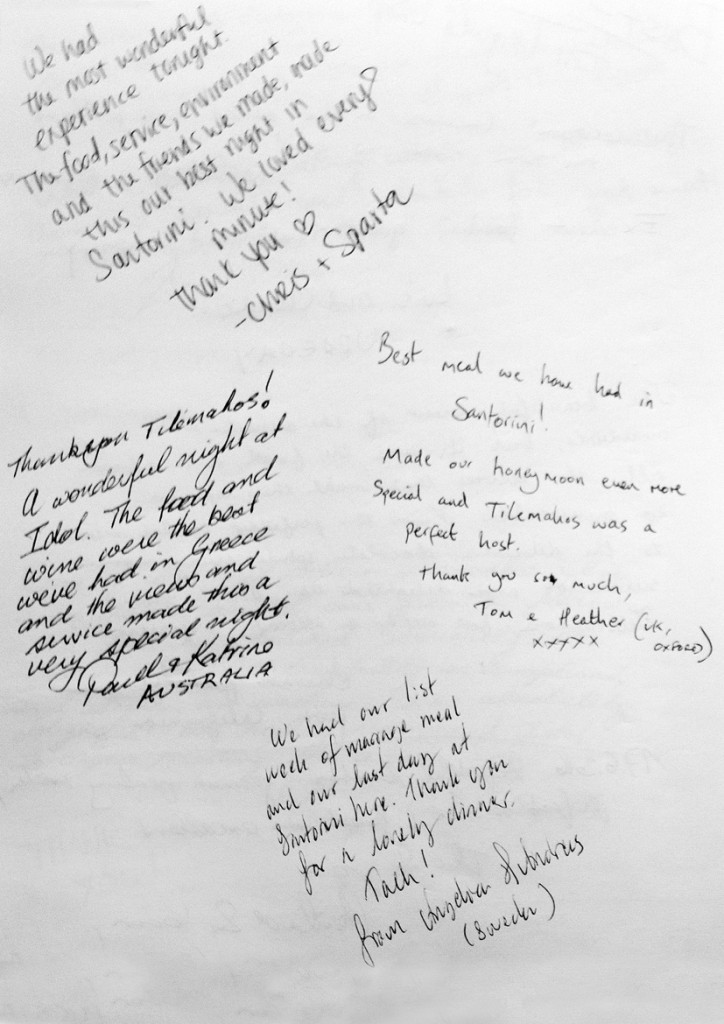 We had
the most wonderful
experience tonight.
The food, service, environment
and the friends we made, made
this our best night in
Santorini. We loved every
minute!
Thank you ♡
-Chris + Sparta
Best meal we have had in
Santorini!
Made our honeymoon even more
Special and Tilemahos was a
perfect host.
Thank you so much,
Tom & Heather (UK,
OXFORD)
xxxxx
Thankyou Tilemahos!
A wonderful night at
Idol. The food and
wine were the best
we've had in Greece
and the views and
service made this a
very special night.
Paul & Katrina
AUSTRALIA
We had our list
week of marrage meal
and our last day at
Santorini here. Thank you
for a lovely dinner.
Tack!
from
(Sweden)